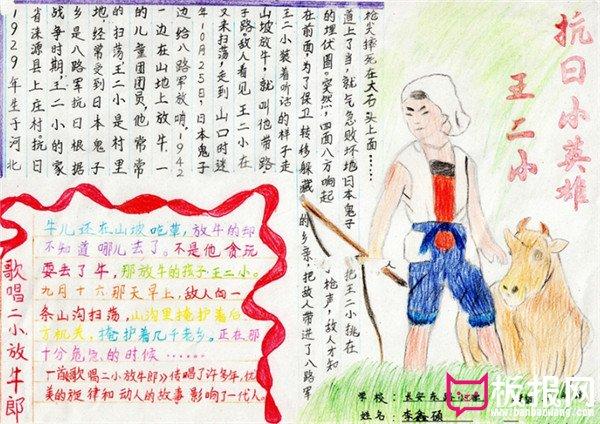 抗日小英雄
王二小
1929年生于河北
省涞源县上庄村。抗日
战争时期,王二小的家
乡是八路军抗日根据
地,经常受到日本鬼子
的扫荡,王二小是村里
的儿童团团员,他常常
一边在山坡上放牛,一
边给八路军放哨。1942
年10月25日,日本鬼子
又来扫荡,走到山口时迷
了路敌人看见王二小在
山坡放牛,就叫他带路。
王二小装着听话的样子走
在前面为了保卫转移躲藏的乡亲,把敌人带进了八路军
的埋伏圈。突然,四面八方响起枪声,敌人才知
道上了当,就气急败坏地日本鬼子把王二小挑在
枪尖摔死在大石头上面……
歌唱二小放牛郎
牛儿还在山坡吃草,放牛的却
不知道哪儿去了。不是他贪玩
耍丢了牛,那放牛的孩子王二小。
九月十六那天早上,敌人向一
条山沟扫荡,山沟里掩护着后
方机关,掩护着几千老乡。正在那
十分危急的时候……
一首《歌唱二小放牛郎》传唱了许多年,优
美的旋律和动人的故事影响了一代人。
学校:长安东路
姓名:李鑫硕
板报网
www.banbaowang.com